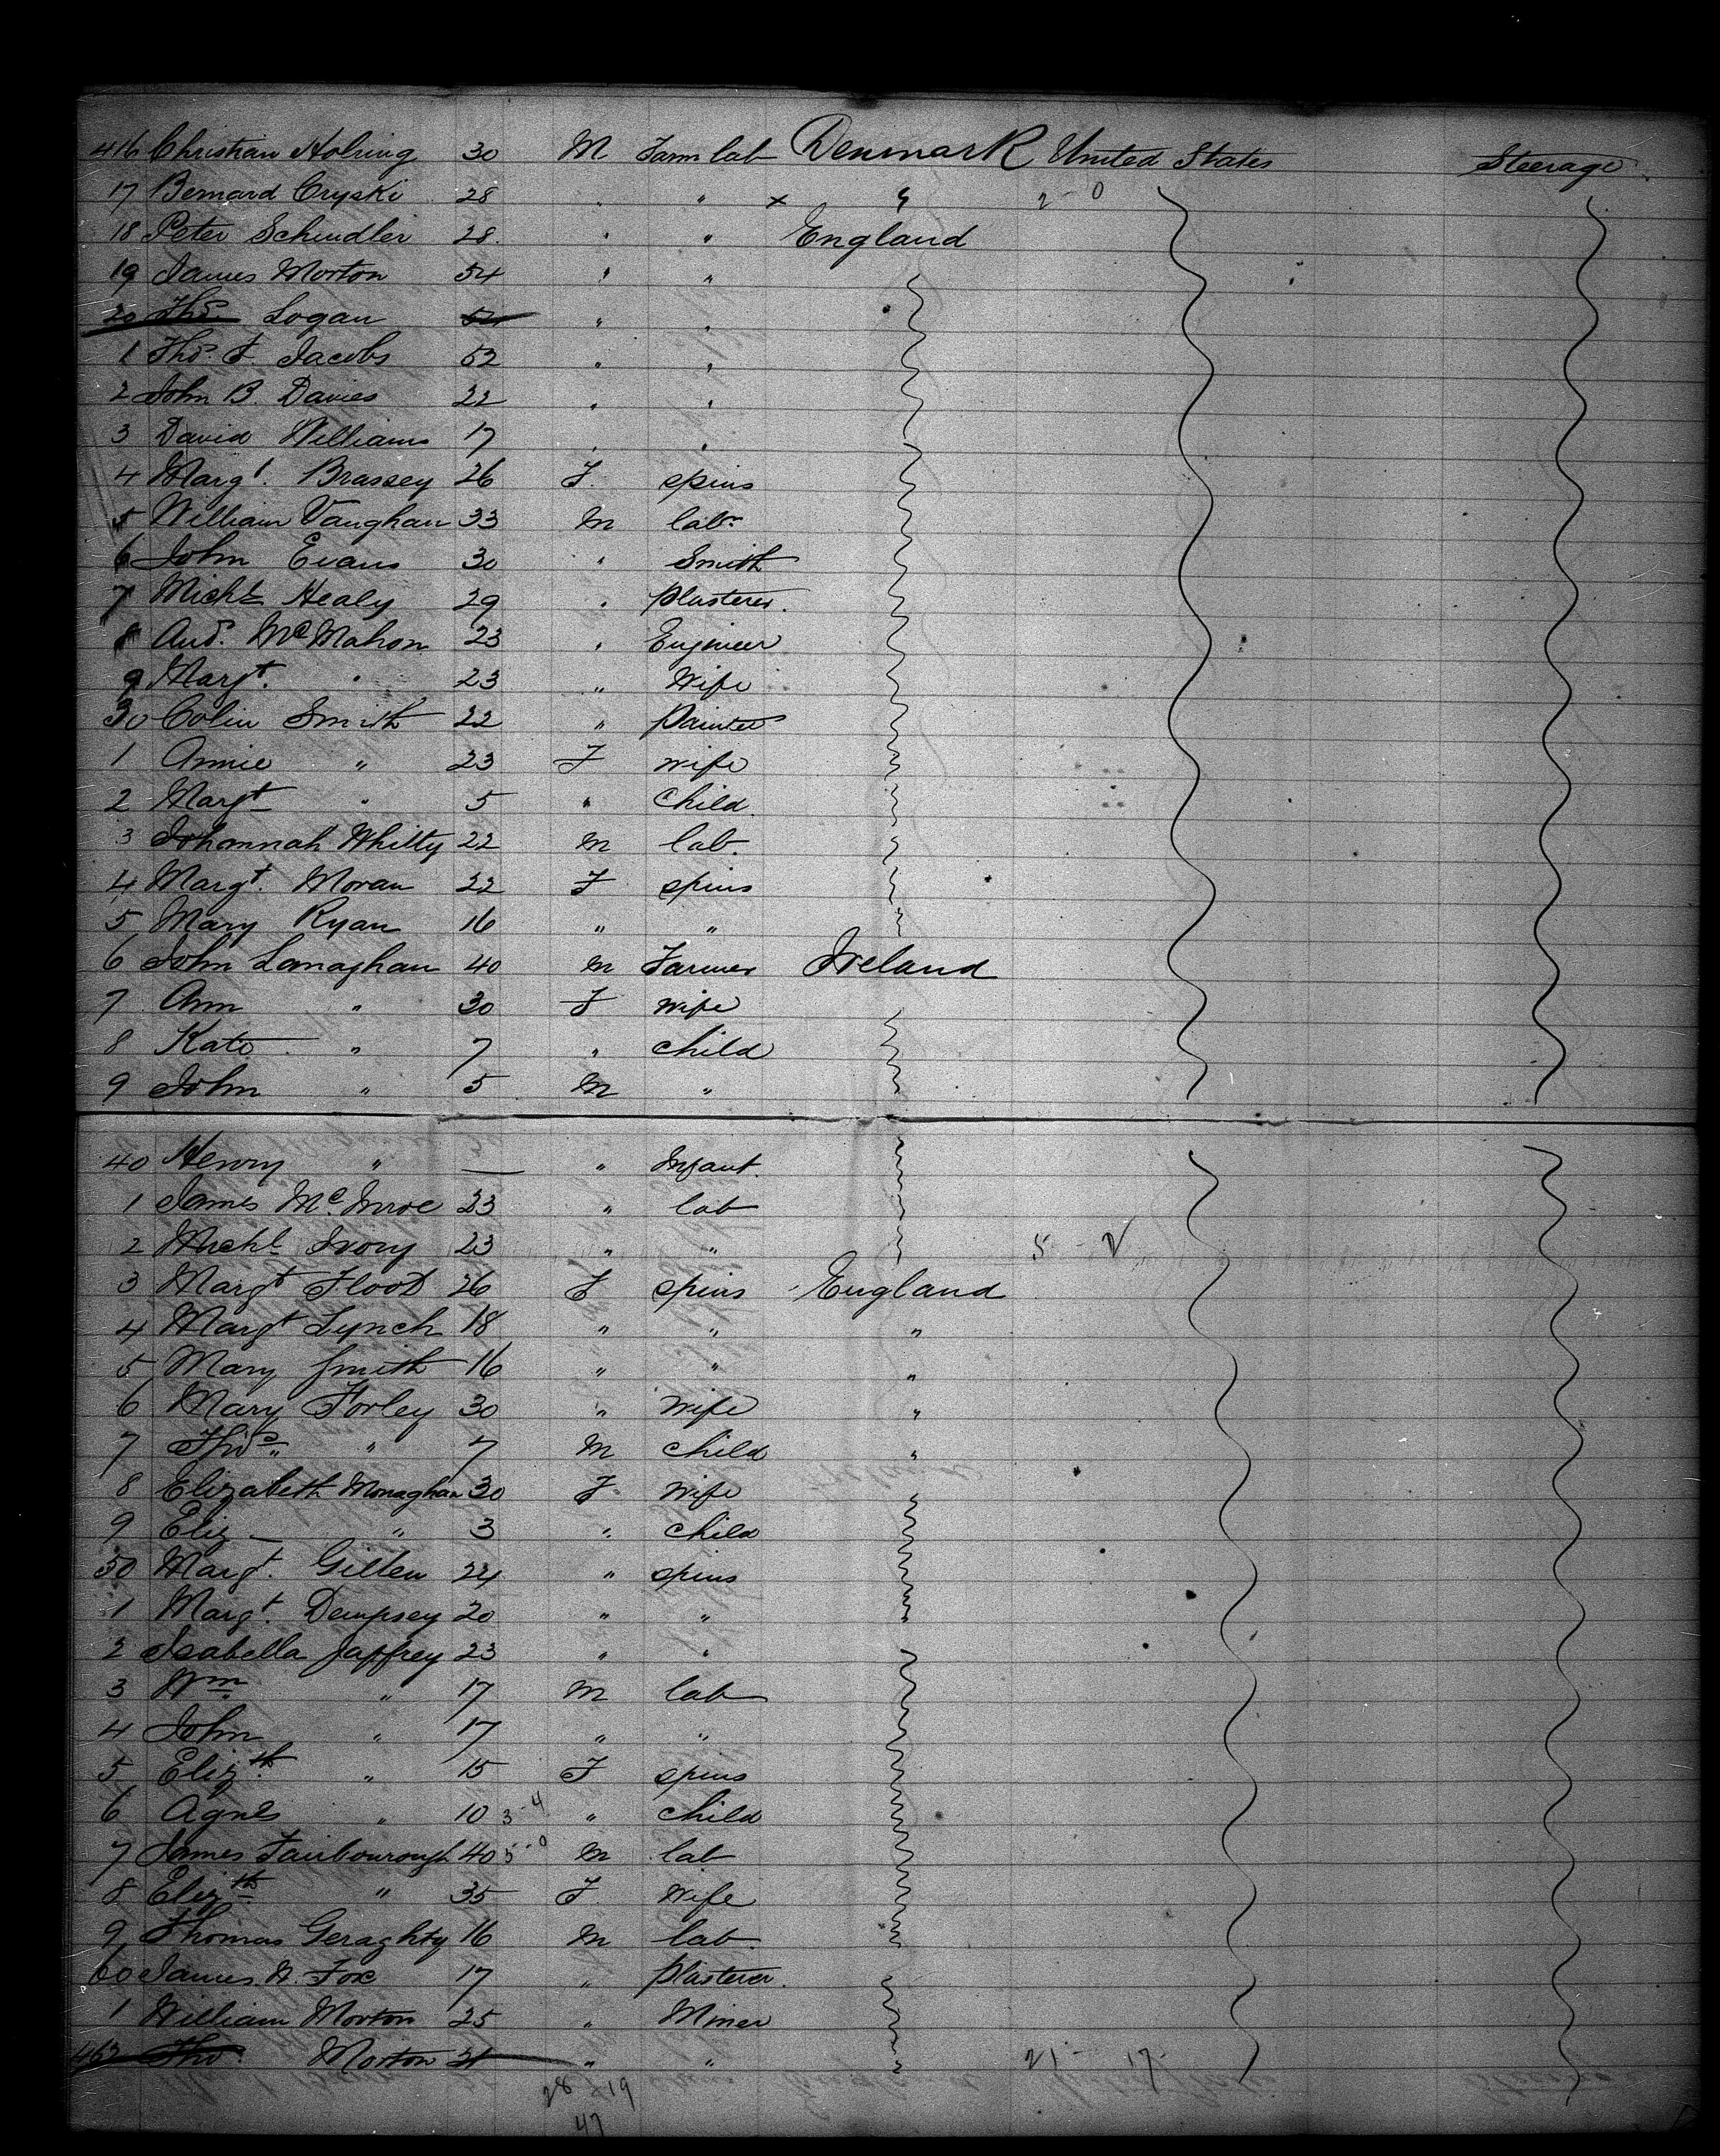 416 Christian Holring 30 M Farm lab Denmark United States Steerage
17 Bernard Cryski 28 " " x " 2-0
18 Peter Schindler 28 " " England
19 James Morton 54 " "
20 Thos. Logan " "
1 Thos. F. Jacobs 52 " "
2 John B. Davies 22 " "
3 David Williams 17 " "
4 Margt. Brassey 26 F. spins
5 William Vaughan 33 M labr
6 John Evans 30 " Smith
7 Michl Healy 29 " Plasterer.
8 And. McMahon 23 " Engineer
9 Margt. " 23 " Wife
30 Colin Smith 22 " Painter
1 Annie " 23 F wife
2 Margt " 5 " Child
3 Johannah Whitty 22 M lab.
4 Margt. Moran 22 F spins
5 Mary Ryan 16 " "
6 John Lanaghan 40 M Farmer Ireland
7 Ann " 30 F wife
8 Kate " 7 " child
9 John " 5 M "
40 Henry " — " Infant
1 James 23 " lab
2 Michl Ivory 23 " " 5 -
3 Margt Flood 26 F spins England
4 Margt Lynch 18 " " "
5 Mary Smith 16 " " "
6 Mary Forley 30 " Wife "
7 Thos. " 7 M child "
8 Elizabeth Monaghan 30 F. Wife
9 Eliz " 3 " child
50 Margt. Gillen 24 " spins
1 Margt. Dempsey 20 " "
2 Isabella Jaffrey 23 " "
3 Wm " 17 M lab
4 John " 17 " "
5 Elizth " 15 F spins
6 Agnes " 10 3-4 " child
7 James Fairbourough 40 5-0 M lab
8 Elizth " 35 F Wife
9 Thomas Geraghty 16 M lab.
60 James Fox 17 " Plasterer.
1 William Morton 25 " Miner
462 Thos. Morton 21 " " 21- 17-
28 19
47